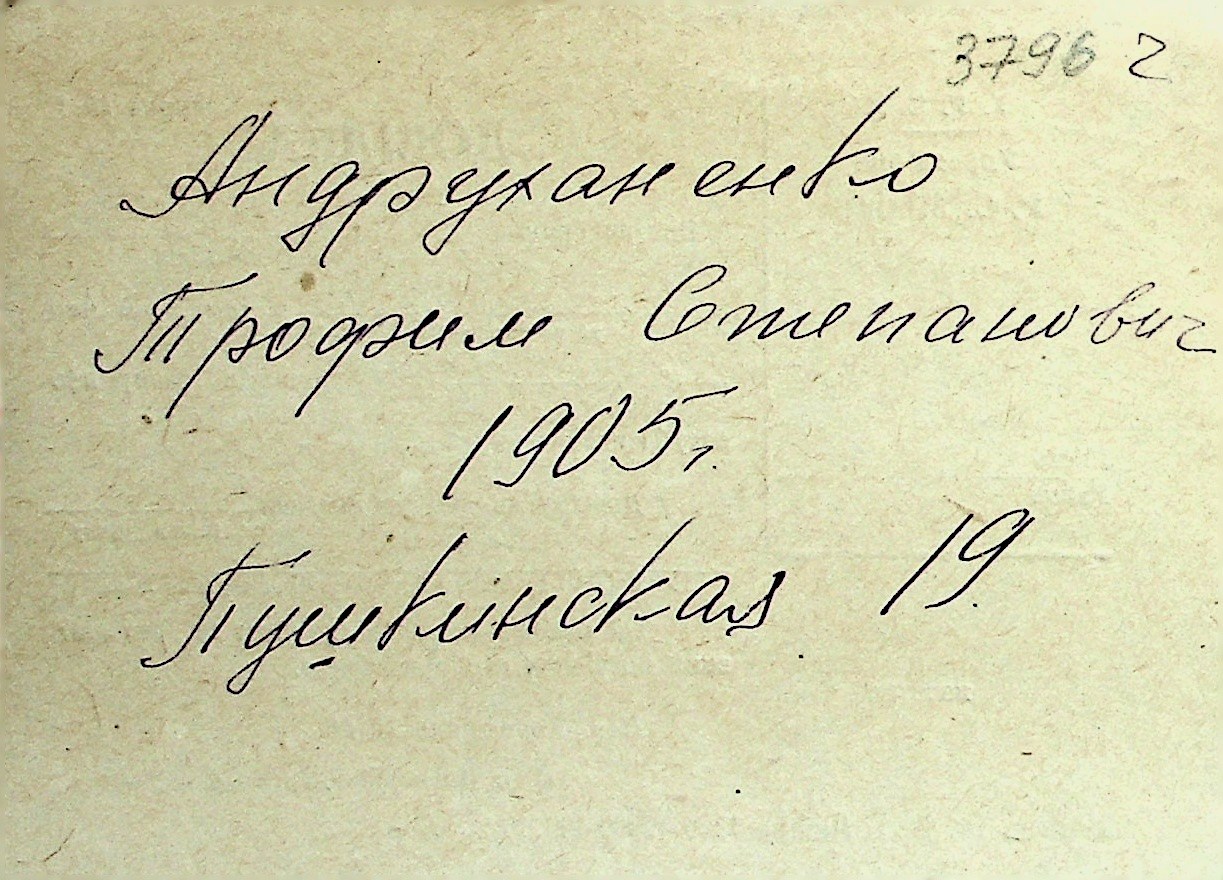 3796 г
Андруханенко
Трофим Степанович
1905г.
Пушкинская 19